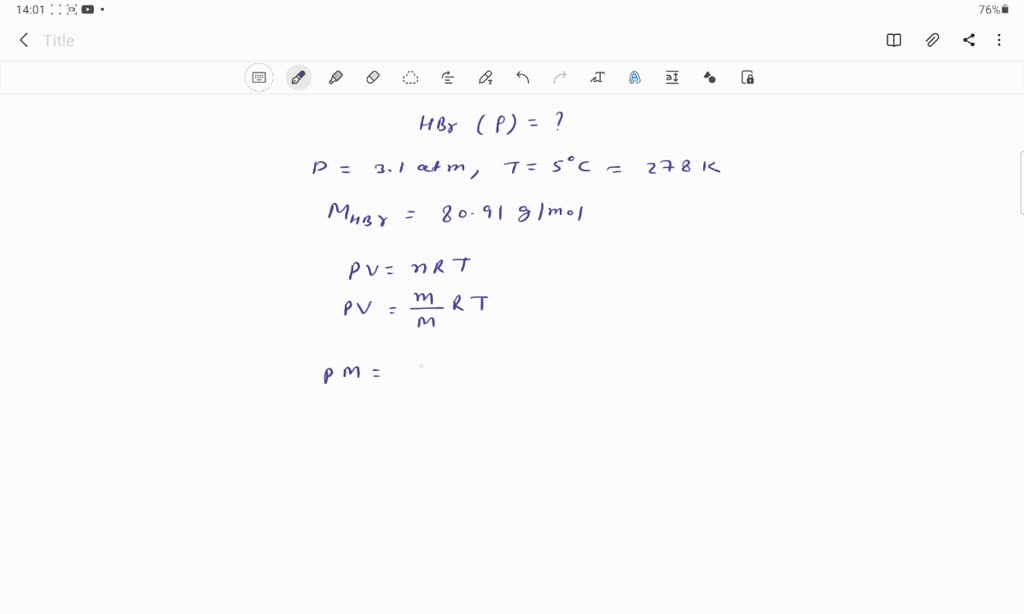 14:01
76%
Title
HBr (P) = ?
P = 3.1 atm, T = 5°C = 278 K
M HBr = 80.91 g/mol
PV = nRT
PV = m/M RT
PM =